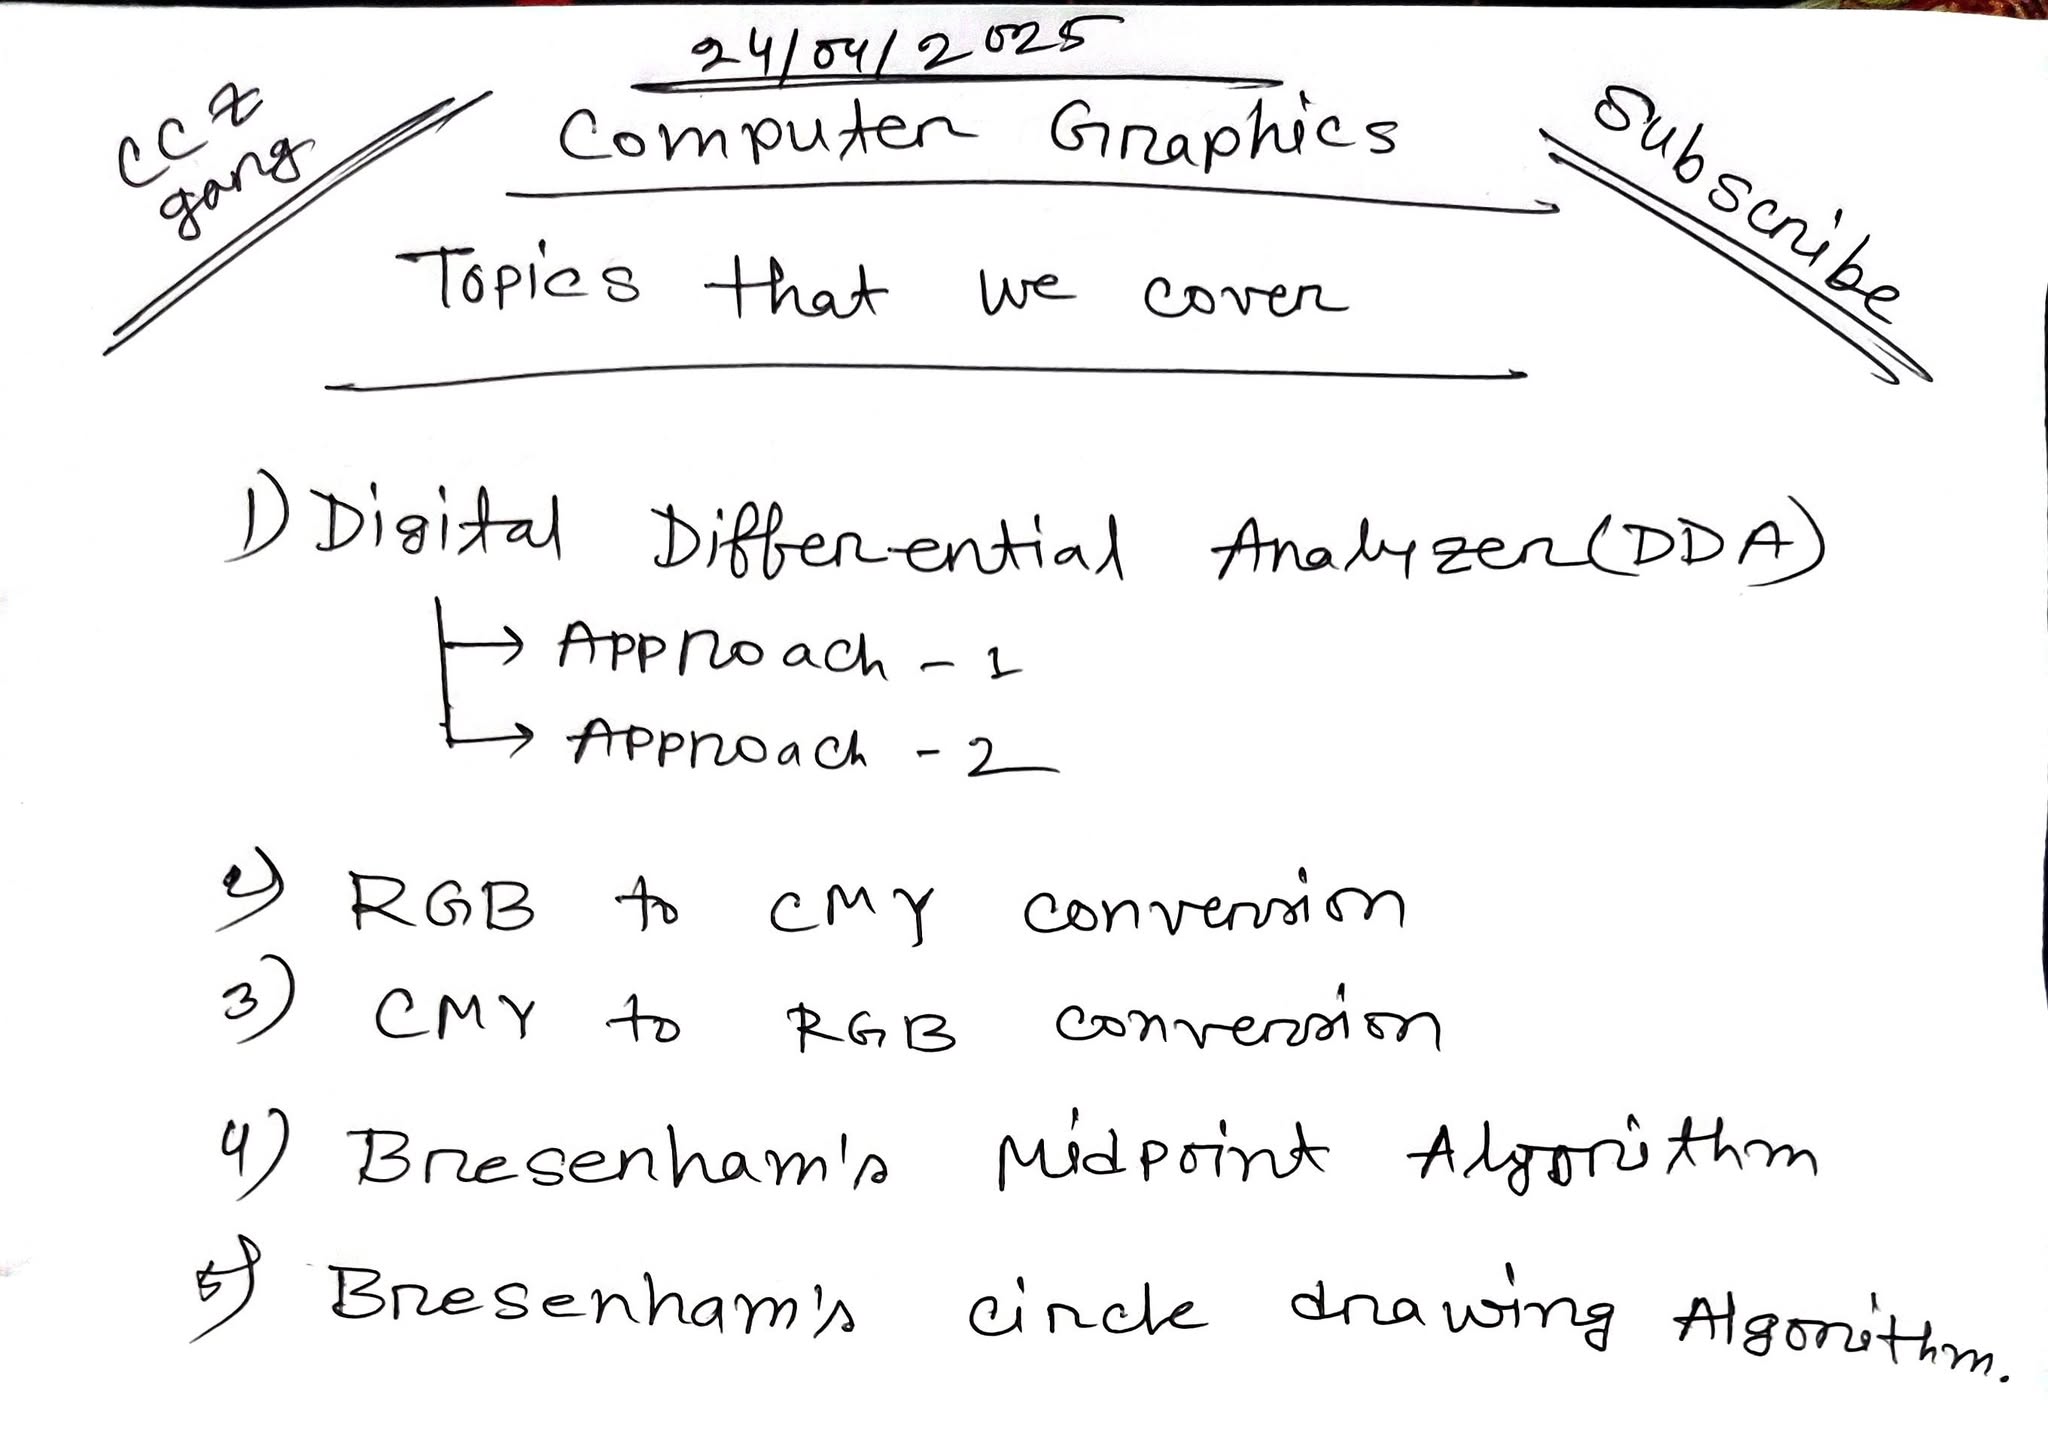 24/04/2025
CCZ
gang
Computer Graphics
Subscribe
Topics that we cover
1) Digital Differential Analyzer (DDA)
→ Approach - 1
→ Approach - 2
2) RGB to CMY conversion
3) CMY to RGB conversion
4) Bresenham's Midpoint Algorithm
5) Bresenham's circle drawing Algorithm.